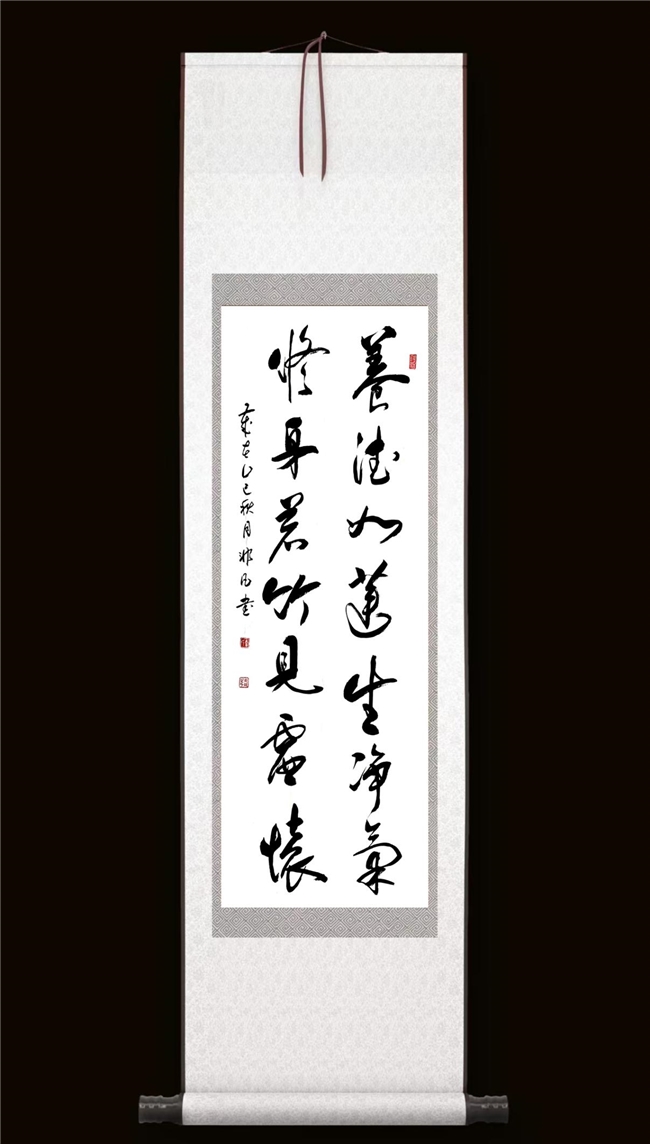 養德如蓮生净氣
修身若竹見虛懷
歲在乙巳秋月非凡書